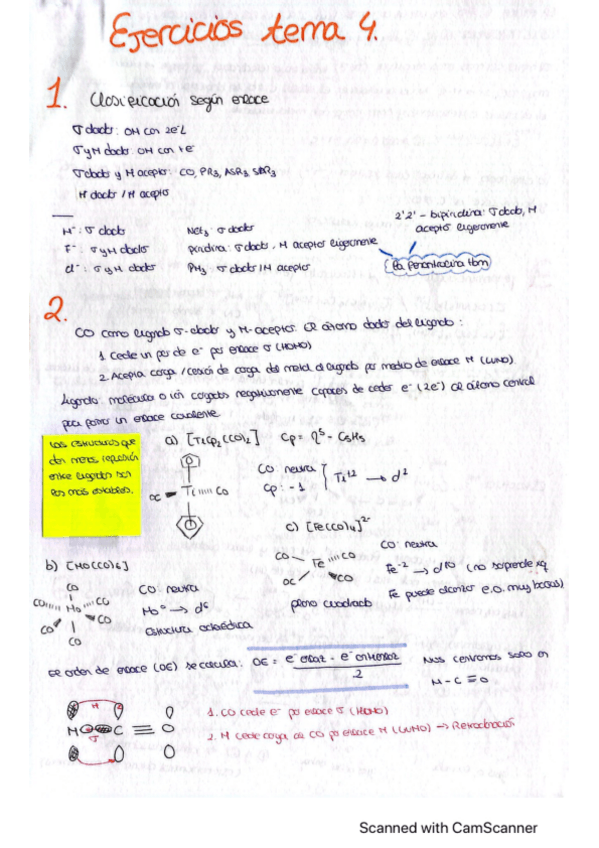 Ejercicios tema 4.
1. Clasificación según enlace
σ dador: OM con 2e⁻L
σ y π dador: OM con +e⁻
σ dador y π aceptor: CO, PR₃, ASR₃, SbR₃
π dador / π aceptor
H⁻: σ dador
F⁻: σ y π dador
Cl⁻: σ y π dador
NEt₃: σ dador
piridina: σ dador, π aceptor ligeramente
PH₃: σ dador / π aceptor
2'2'-bipiridina: σ dador, π
aceptor ligeramente
La fenantrolina tbm
2.
CO como ligando σ-dador y π-aceptor. El átomo dador del ligando:
1. Cede un par de e⁻ por enlace σ (HOMO)
2. Acepta carga / cesión de carga del metal al ligando por medio de enlace π (LUMO).
Ligando: molécula o ión cargados negativamente capaces de ceder e⁻ (2e⁻) al átomo central
para formar un enlace covalente
Las estructuras que
dan menos repulsión
entre ligandos son
las más estables.
a) [TiCp₂(CO)₂] Cp = η⁵-C₅H₅
CO: neutra
Cp: -1
Ti⁺² → d²
OC Ti CO
c) [Fe(CO)₄]²⁻
CO Fe CO
OC CO
plano cuadrado
CO: neutra
Fe⁻² → d¹⁰ (no sorprende xq
Fe puede admitir e.o. muy bajos)
b) [Mo(CO)₆]
CO
CO Mo CO
CO CO
CO
CO: neutra
Mo⁰ → d⁶
Estructura octaédrica
El orden de enlace (OE) se calcula: OE = e⁻enlaz - e⁻antienlaz / 2
Nos centramos solo en
M-C≡O
M C ≡ O
π
σ
1. CO cede e⁻ por enlace σ (HOMO)
2. M cede carga de CO por enlace π (LUMO) → Retrodonación
Scanned with CamScanner